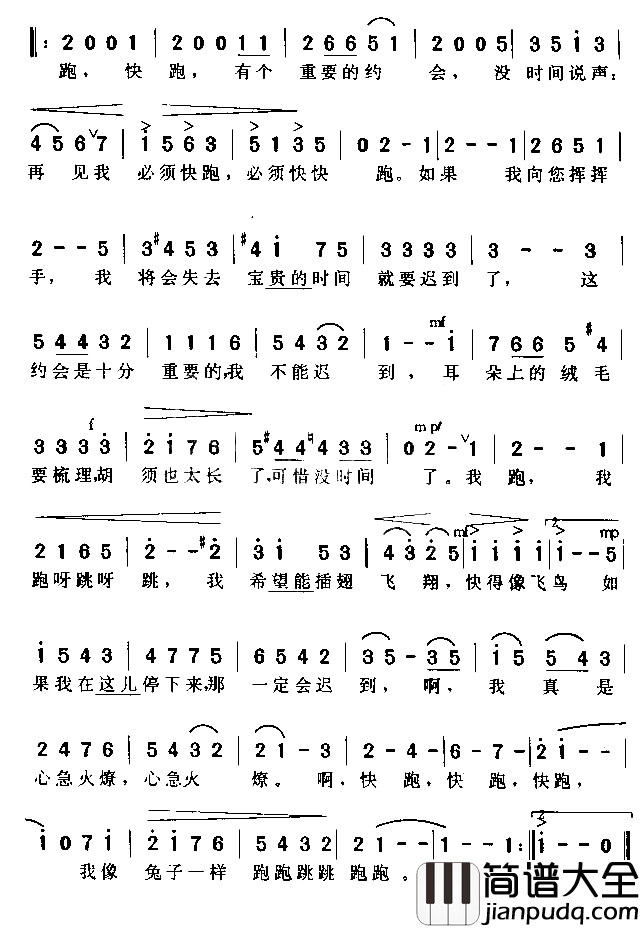 ‖: 2 0 0 0 1 | 2 0 0 0 1 1 | 2 6 6 5 1 | 2 0 0 5 | 3 5 i 3
跑，快跑，有个 重要的约 会，没 时间说声：
4 5 6 7 | i 5 6 3 | 5 1 3 5 | 0 2 - 1 | 2 - - 1 | 2 6 5 1
再 见我 必须快跑，必须快快 跑。如果 我向您挥挥
2 - - 5 | 3 #4 5 3 | #4 i 7 5 | 3 3 3 3 | 3 - - 3
手，我 将会失去 宝贵的时间 就要迟到 了，这
mf
5 4 4 3 2 | 1 1 1 6 | 5 4 3 2 | 1 - - i | 7 6 6 5 #4
约会是十分 重要的，我 不能迟 到，耳 朵上的绒毛
f mp
3 3 3 3 | 2 i 7 6 | 5 #4 4 ♮4 3 3 | 0 2 - 1 | 2 - - 1
要梳理，胡 须也太长 了，可惜没时间 了。我跑，我
mf 2 mp
2 1 6 5 | 2 - - #2 | 3 i 5 3 | 4 3 2 5 | i i i i | i - - 5
跑呀跳呀 跳，我 希望能插翅 飞 翔，快得像飞鸟 如
i 5 4 3 | 4 7 7 5 | 6 5 4 2 | 3 5 - 3 5 | i 5 5 4 3
果我在这儿停下来，那 一定会迟 到，啊，我 真是
2 4 7 6 | 5 4 3 2 | 2 1 - 3 | 2 - 4 - | 6 - 7 - | 2 i - -
心急火燎，心急火 燎。啊，快 跑，快 跑，快跑，
3
i 0 7 i | 2 i 7 6 | 5 4 3 2 | 2 1 - - | 1 - 1 - :‖ i - - 0 ‖
我像 兔子一样 跑跑跳跳 跑跑。
简谱大全
jianpudq.com